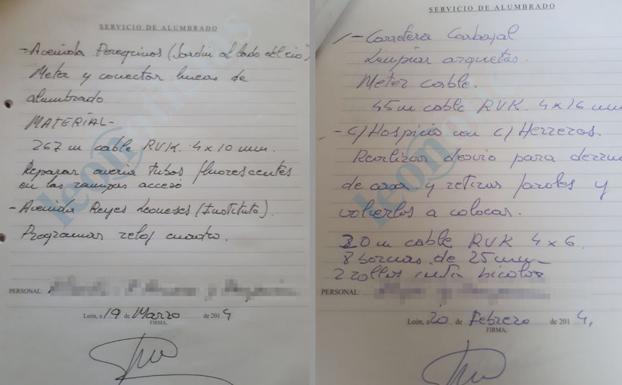 SERVICIO DE ALUMBRADO
- Avenida Peregrinos (Jardin al lado del rio)
Meter y conectar lineas de
alumbrado
MATERIAL-
267 m cable RVK 4x10 mm.
Reparar averia tubos fluorescentes
en las rampas acceso
- Avenida Reyes Leoneses (Instituto).
Programar reloj cuadro.
PERSONAL:
León, a 19 de Marzo de 2014
FIRMA,
SERVICIO DE ALUMBRADO
- Carretera Carbajal
Limpiar arquetas.
Meter cable.
45 m cable RVK 4x16 mm
- C/Hospicio con C/ Herreros.
Realizar desvio para
de casa y retirar farolas y
volverlos a colocar.
20 m cable RVK 4x6.
8 bornas de 25 mm
2 rollos cinta bicolor
PERSONAL:
León, a 20 de Febrero de 2014,
FIRMA,